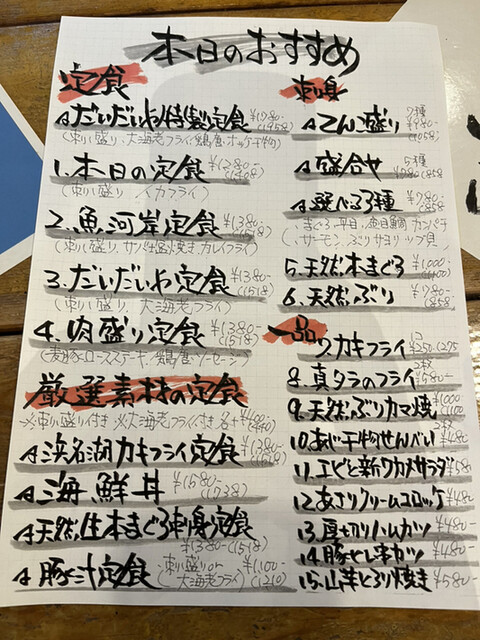 本日のおすすめ
定食
☆だいだいや特製定食 ¥1780-(1958)
(刺し盛り、大海老フライ、鶏唐、ホッケ干物)
1.本日の定食 ¥1280-(1408)
(刺し盛り イカフライ)
2.魚河岸定食 ¥1380-(1518)
(刺し盛り、サバ塩焼き、カレイフライ)
3.だいだいや定食 ¥1380-(1518)
(刺し盛り、大海老フライ)
4.肉盛り定食 ¥1380-(1518)
厳選素材の定食
※刺し盛り付き ※大海老フライ付き
☆浜名湖カキフライ定食 ¥1380-
☆海鮮丼 ¥1580-(1738)
☆天然生本まぐろ刺身定食
¥1380-(1518)
☆豚汁定食 刺し盛り or 大海老フライ ¥1100-(1210)
刺し身
☆てんこ盛り
☆盛合せ 5種
☆選べる3種 ¥780-(858)
(まぐろ、平目、金目鯛、カンパチ
サーモン、ぶり、サヨリ、ツブ貝)
5.天然本まぐろ ¥1000-(1100)
6.天然ぶり ¥780-(858)
一品
7.カキフライ
8.真タラのフライ ¥580-
9.天然ぶりカマ焼 ¥1000-(1100)
10.あじ干物せんべい ¥480-
11.エビと新ワカメサラダ ¥580
12.あさりクリームコロッケ ¥480
13.厚切りハムカツ ¥480-
14.豚しそ串カツ ¥480-
15.山芋とろり焼き ¥580-